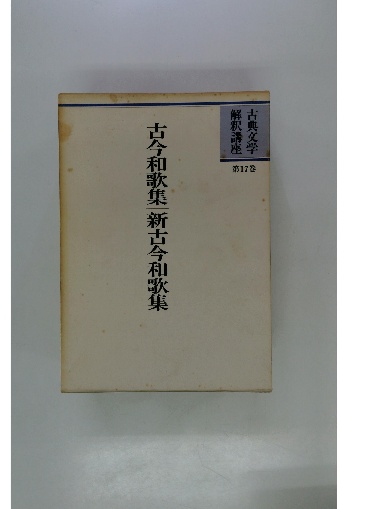 古典文学
解釈講座
第17巻
古今和歌集|新古今和歌集